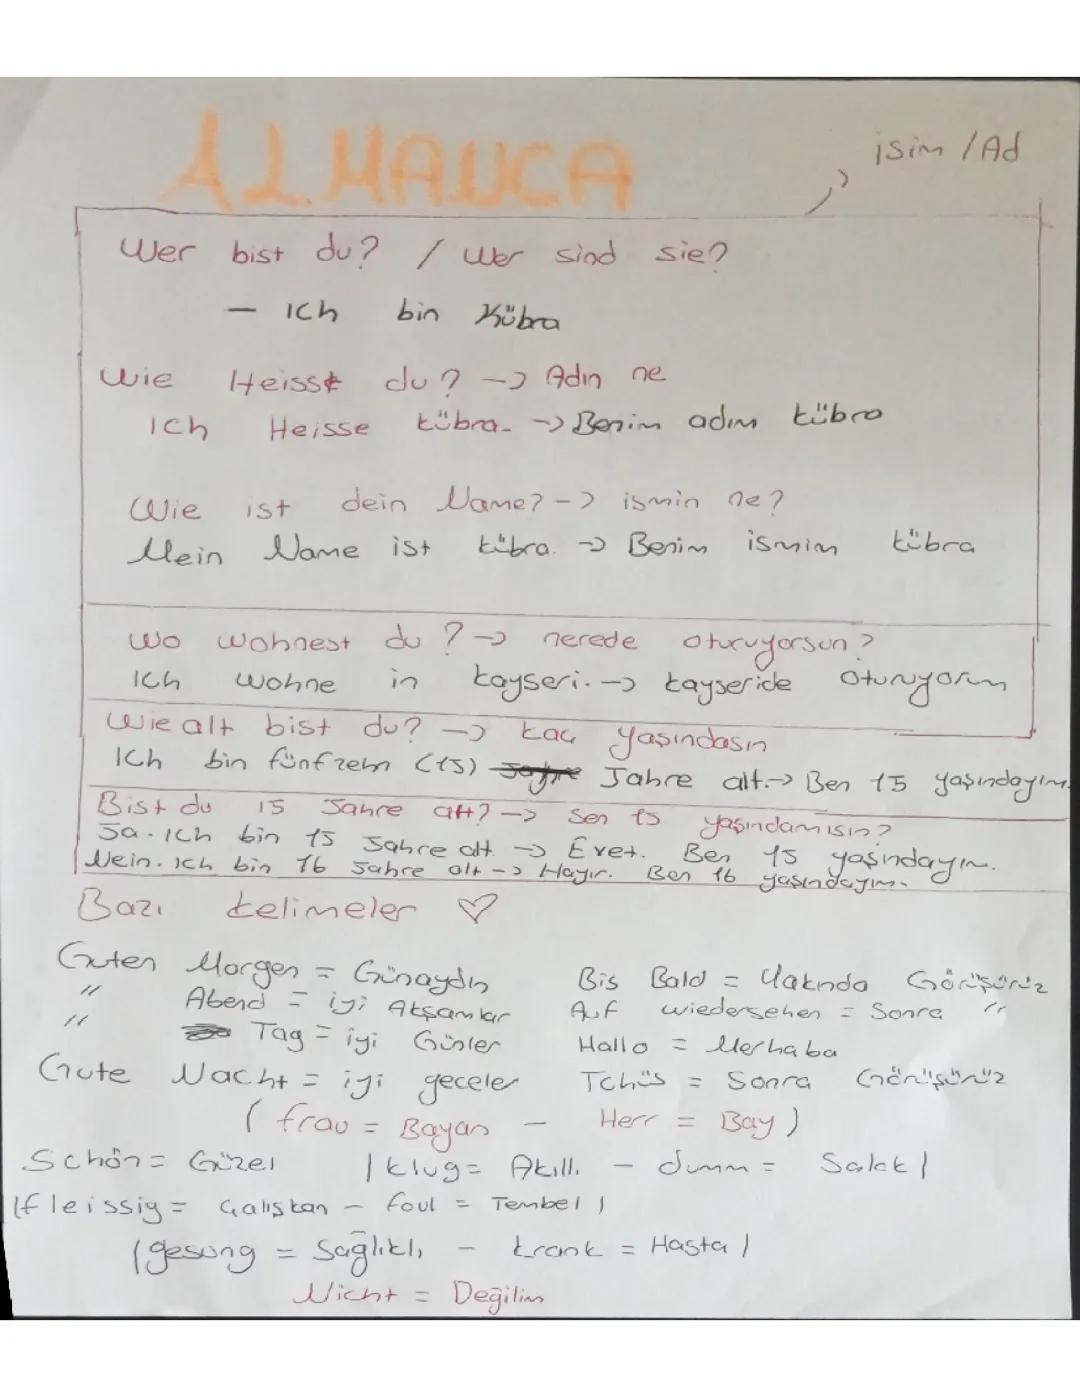 ALMANCA
isim / Ad
Wer bist du? / Wer sind sie?
- Ich bin Kübra
Wie Heisst du? -> Adın ne
Ich Heisse Kübra. -> Benim adım Kübra
Wie ist dein Name? -> ismin ne?
Mein Name ist Kübra. -> Benim ismim Kübra
Wo wohnest du? -> nerede oturuyorsun?
Ich wohne in Kayseri. -> Kayseride oturuyorum
Wie alt bist du? -> Kaç yaşındasın
Ich bin fünfzehn (15) Jahre alt. -> Ben 15 yaşındayım.
Bist du 15 Jahre alt? -> Sen 15 yaşındamısın?
Ja. Ich bin 15 Jahre alt -> Evet. Ben 15 yaşındayım.
Nein. Ich bin 16 Jahre alt -> Hayır. Ben 16 yaşındayım.
Bazı Kelimeler ♡
Guten Morgen = Günaydın
" Abend = iyi Akşamlar
" Tag = iyi Günler
Gute Nacht = iyi geceler
Bis Bald = Yakında Görüşürüz
Auf wiedersehen = Sonra "
Hallo = Merhaba
Tchüs = Sonra Görüşürüz
( frau = Bayan - Herr = Bay )
Schön = Güzel | klug = Akıllı - dumm = Salak |
| fleissig = Çalışkan - foul = Tembel |
| gesung = Sağlıklı - krank = Hasta |
Nicht = Değilim